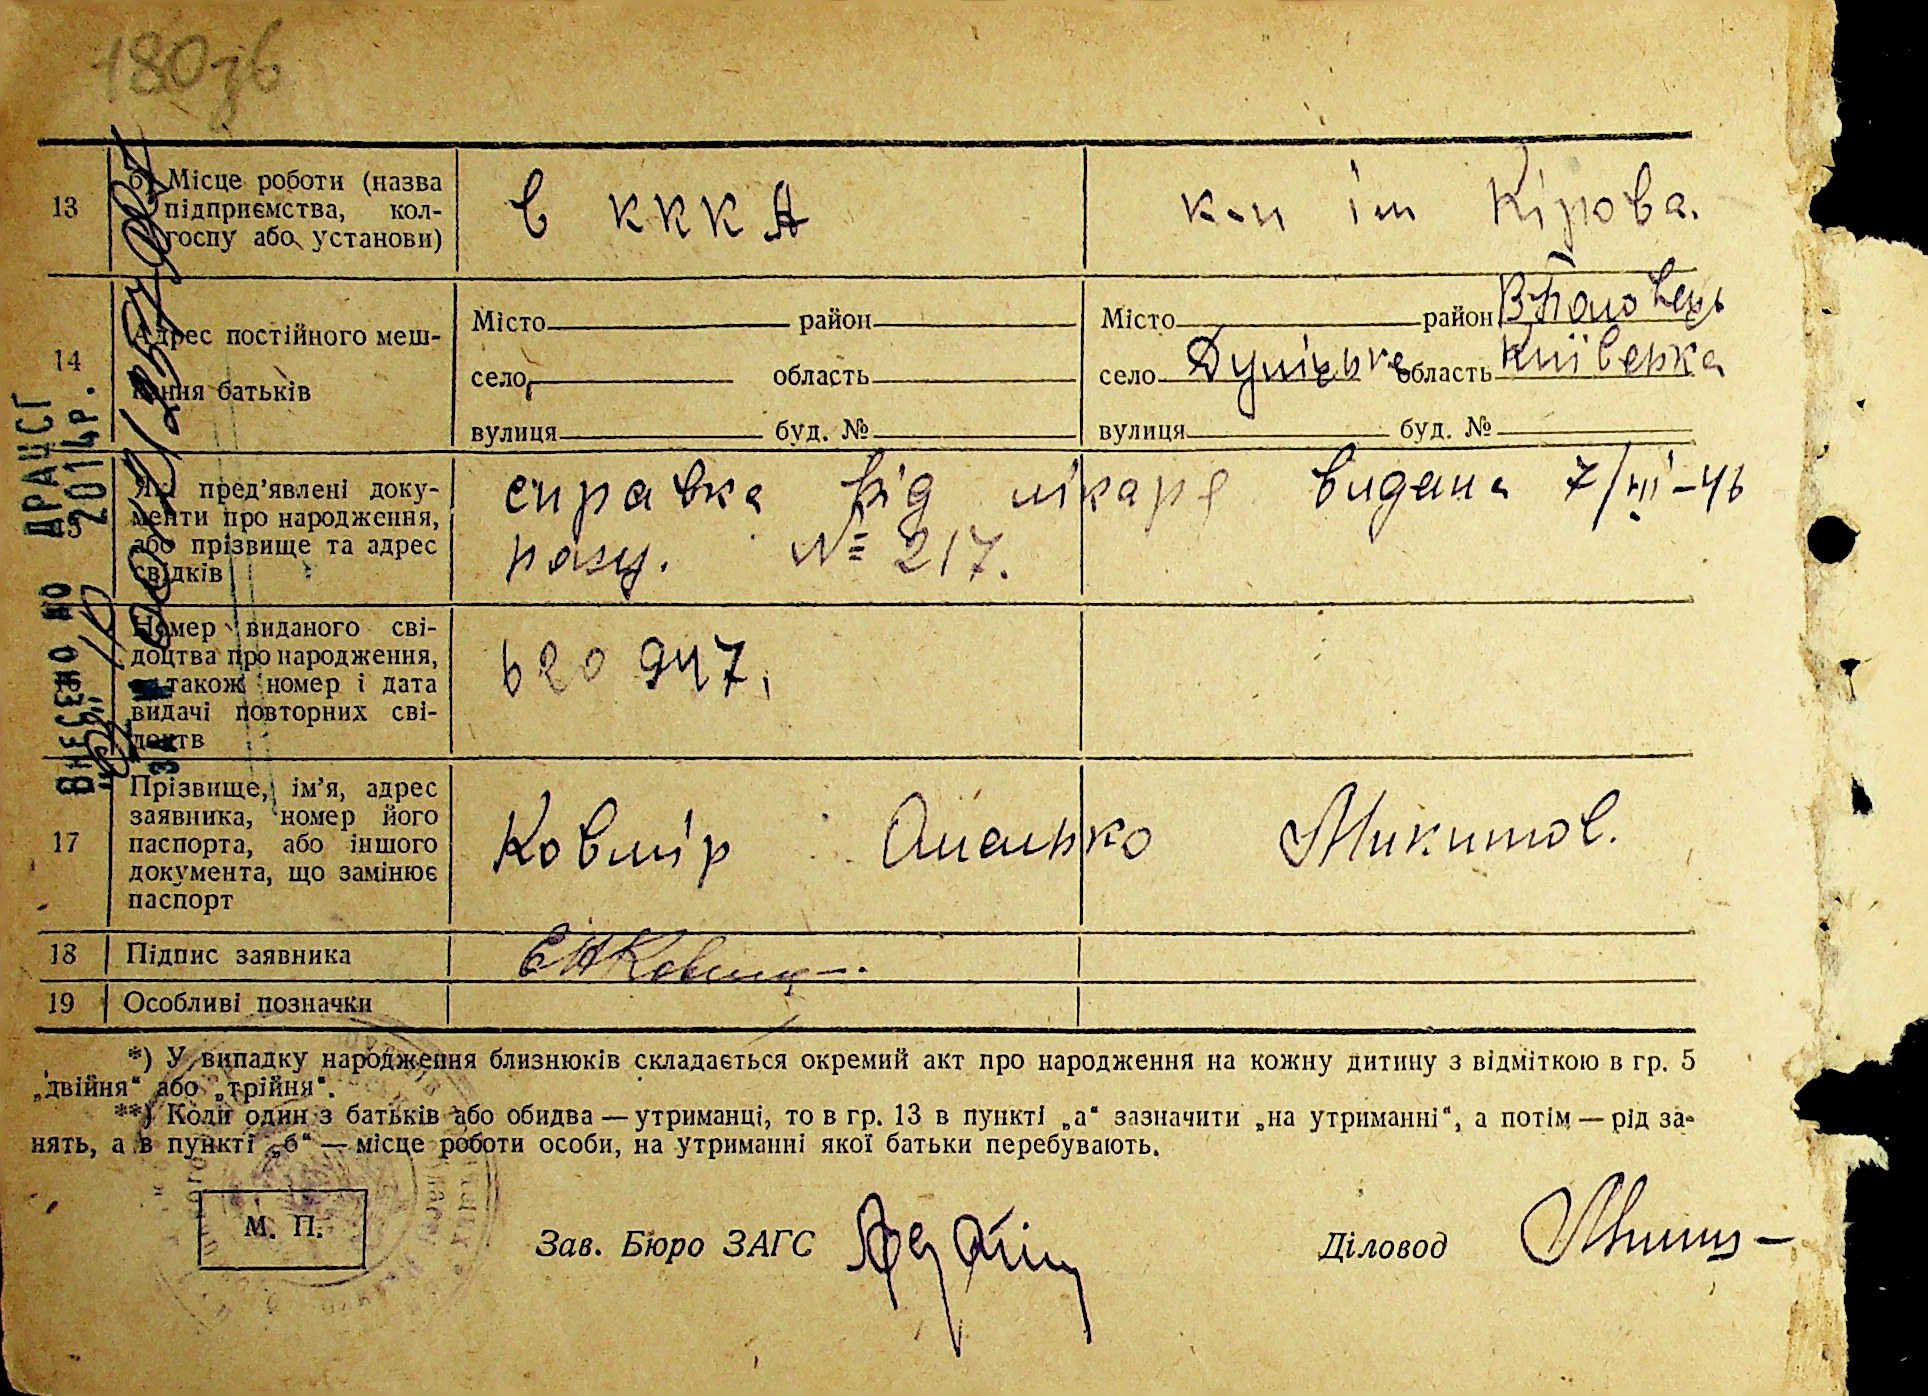 180 зв
13
б) Місце роботи (назва
підприємства, кол-
госпу або установи)
в ККК А
к-п ім Кірова.
14
Адрес постійного меш-
кання батьків
Місто район
село область
вулиця буд. №
Місто район В Половець
село Дуліцьке область Київська
вулиця буд. №
15
Які пред’явлені доку-
менти про народження,
або прізвище та адрес
свідків
справка від лікаря видана 7/III-46
№ 217.
Номер виданого сві-
доцтва про народження,
а також номер і дата
видачі повторних сві-
доцтв
620947.
17
Прізвище, ім’я, адрес
заявника, номер його
паспорта, або іншого
документа, що замінює
паспорт
Ковмір Омелько Микитов.
18
Підпис заявника
19
Особливі позначки
*) У випадку народження близнюків складається окремий акт про народження на кожну дитину з відміткою в гр. 5
„двійня“ або „трійня“.
**) Коли один з батьків або обидва — утриманці, то в гр. 13 в пункті „а“ зазначити „на утриманні“, а потім — рід за-
нять, а в пункті „б“ — місце роботи особи, на утриманні якої батьки перебувають.
М. П.
Зав. Бюро ЗАГС
Діловод
ВНЕСЕНО ДО ДРАЦСГ
2014р.
ЗА №